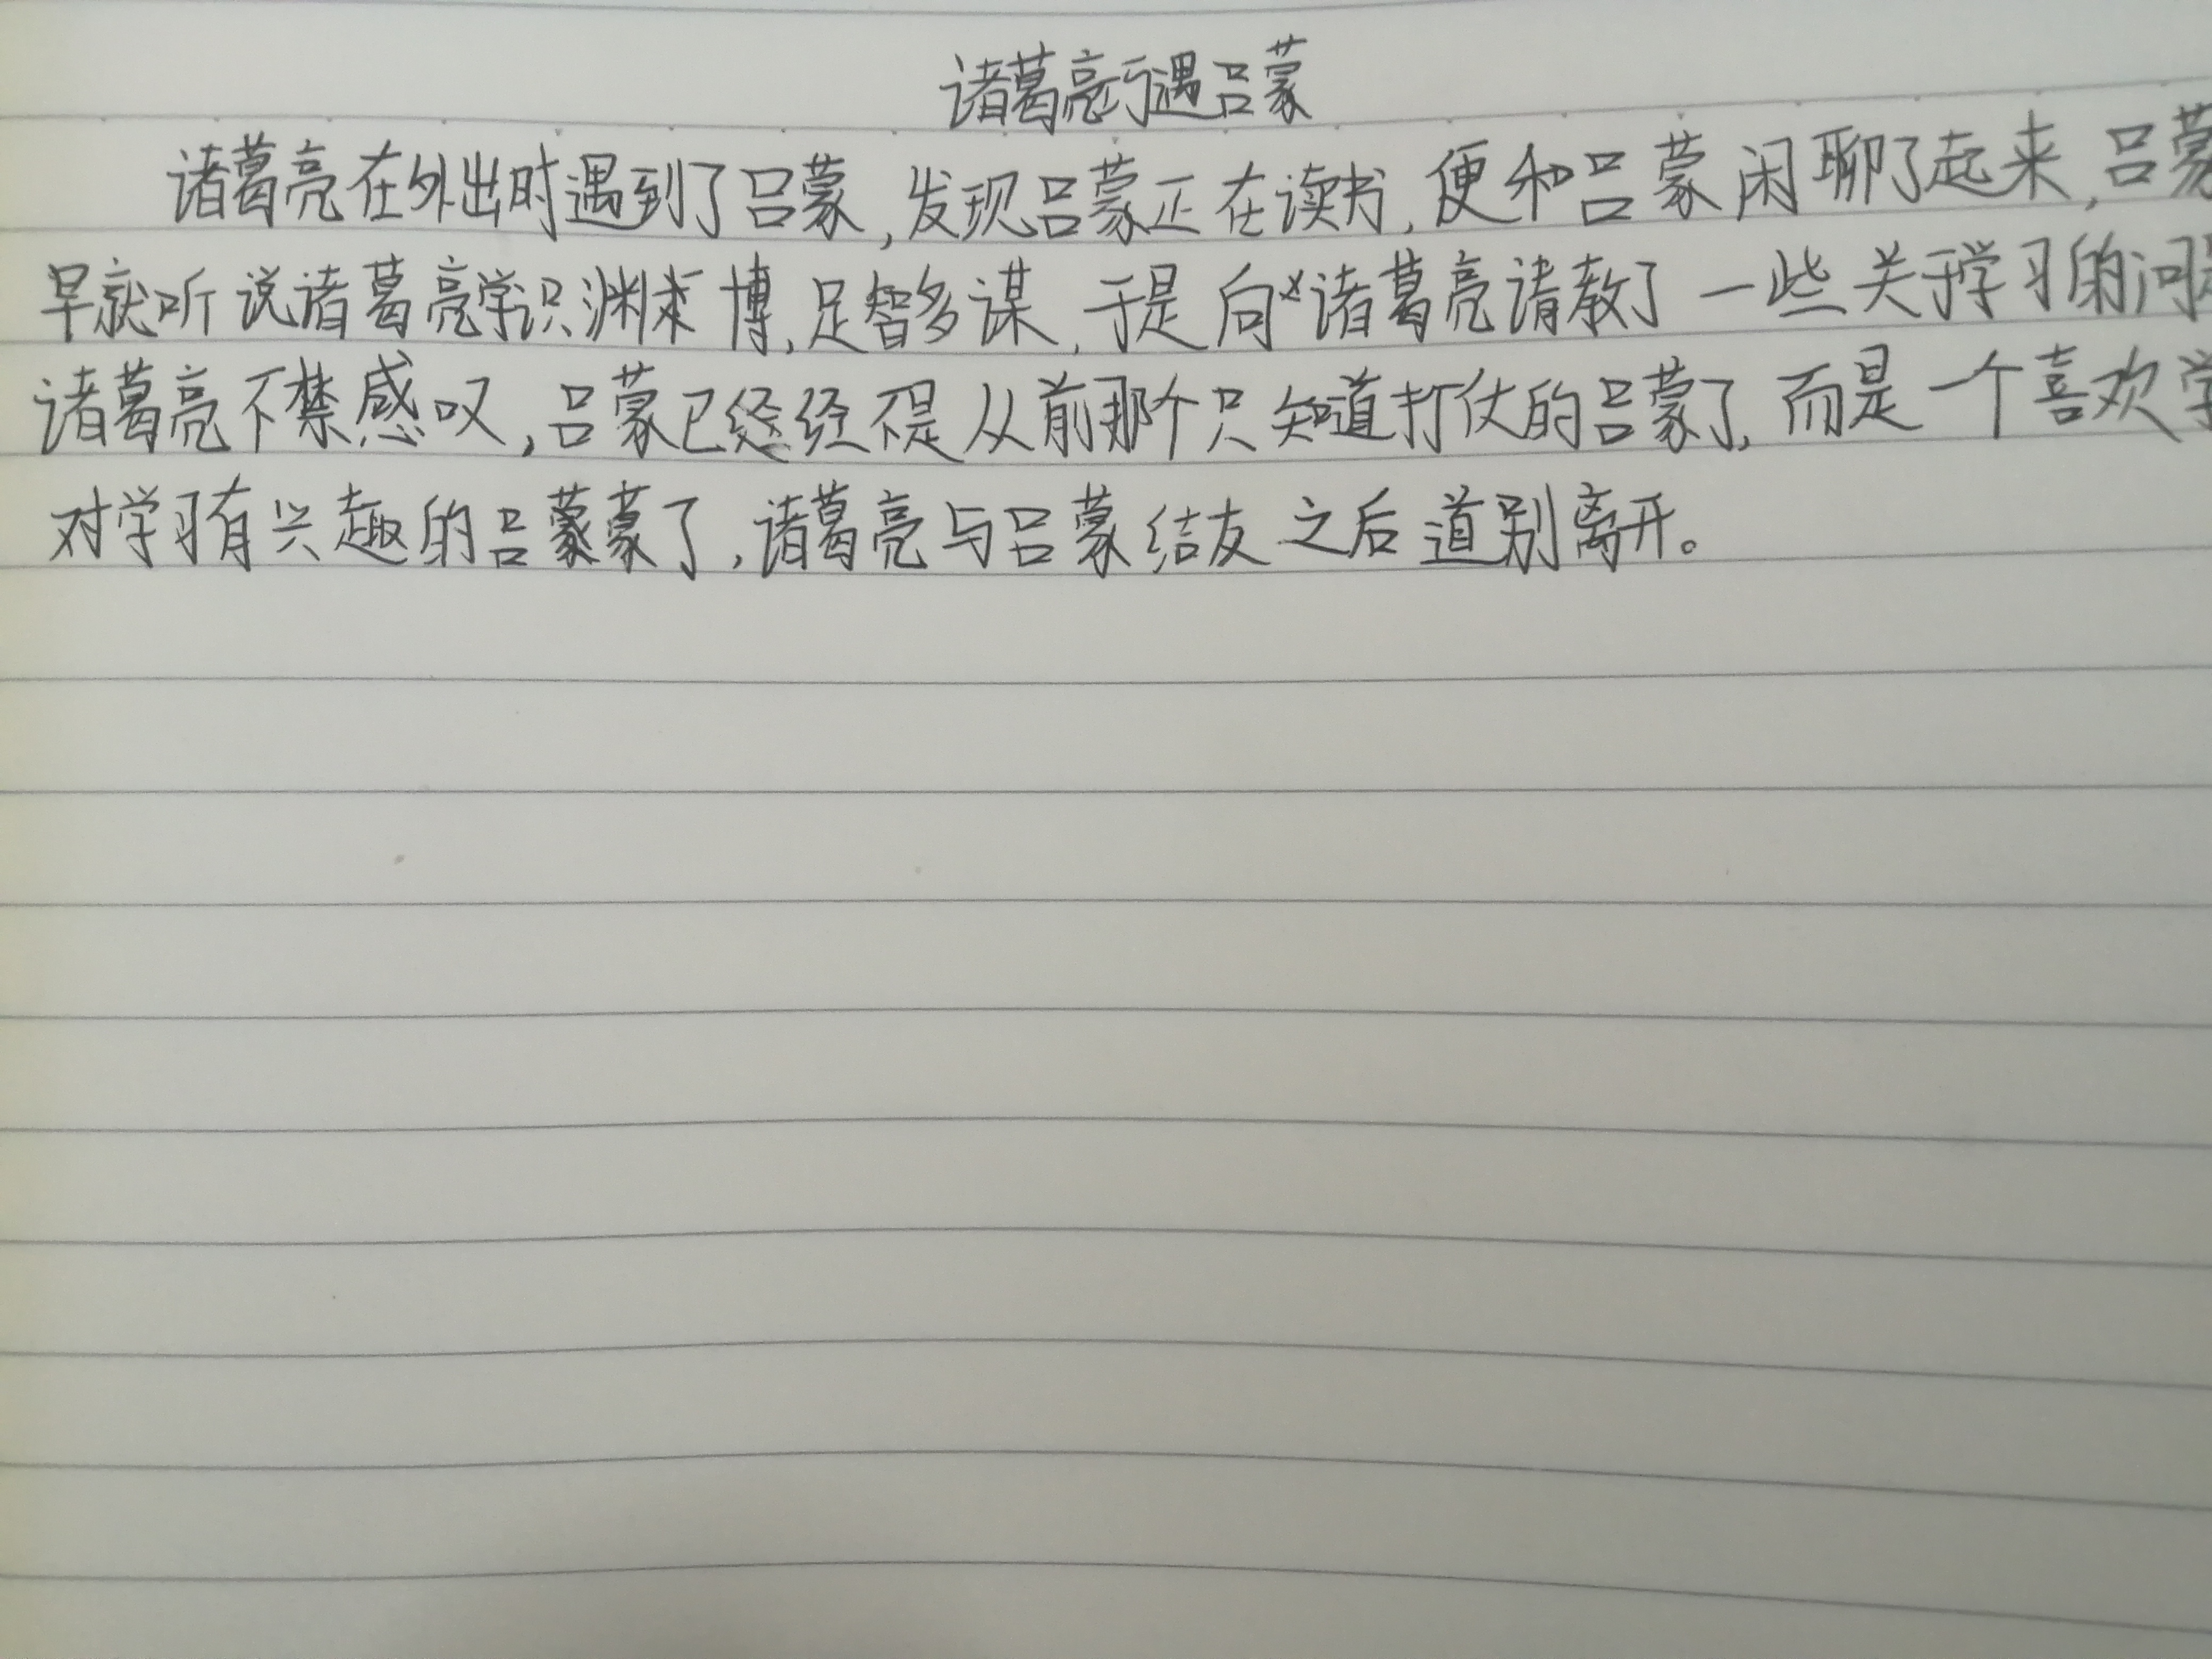 诸葛亮亏遇吕蒙
诸葛亮在外出时遇到了吕蒙,发现吕蒙正在读书,便和吕蒙闲聊了起来,吕蒙
早就听说诸葛亮学识渊博,足智多谋,于是向诸葛亮请教了一些关于学习的问
诸葛亮不禁感叹,吕蒙已经经不是从前那个只知道打仗的吕蒙了,而是一个喜欢学
对学习有兴趣的吕蒙蒙了,诸葛亮与吕蒙结友之后道别离开。